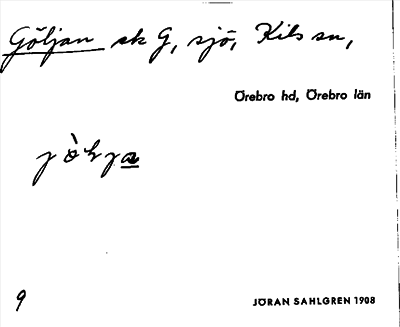 Göljan sk G, sjö, Kils sn,
Örebro hd, Örebro län
9
JÖRAN SAHLGREN 1908